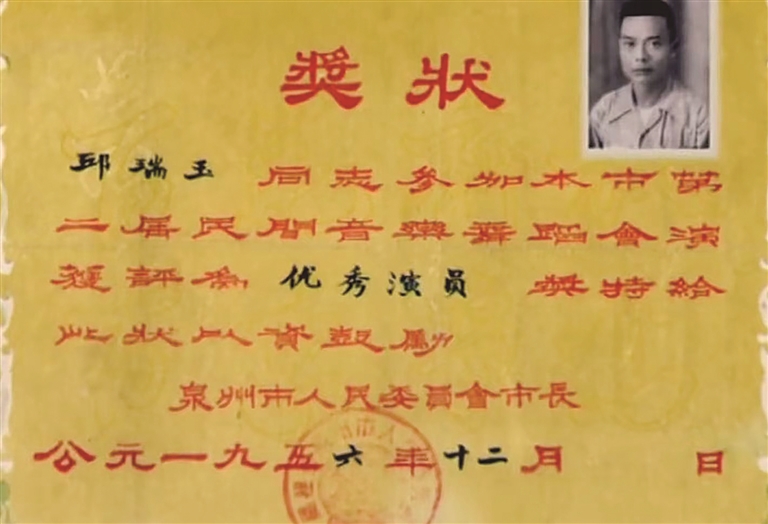 奬狀
邱瑞玉同志参加本市第
二届民間音樂舞蹈會演
獲評為优秀演員奬特給
此狀以資鼓勵
泉州市人民委員會市長
公元一九五六年十二月 日